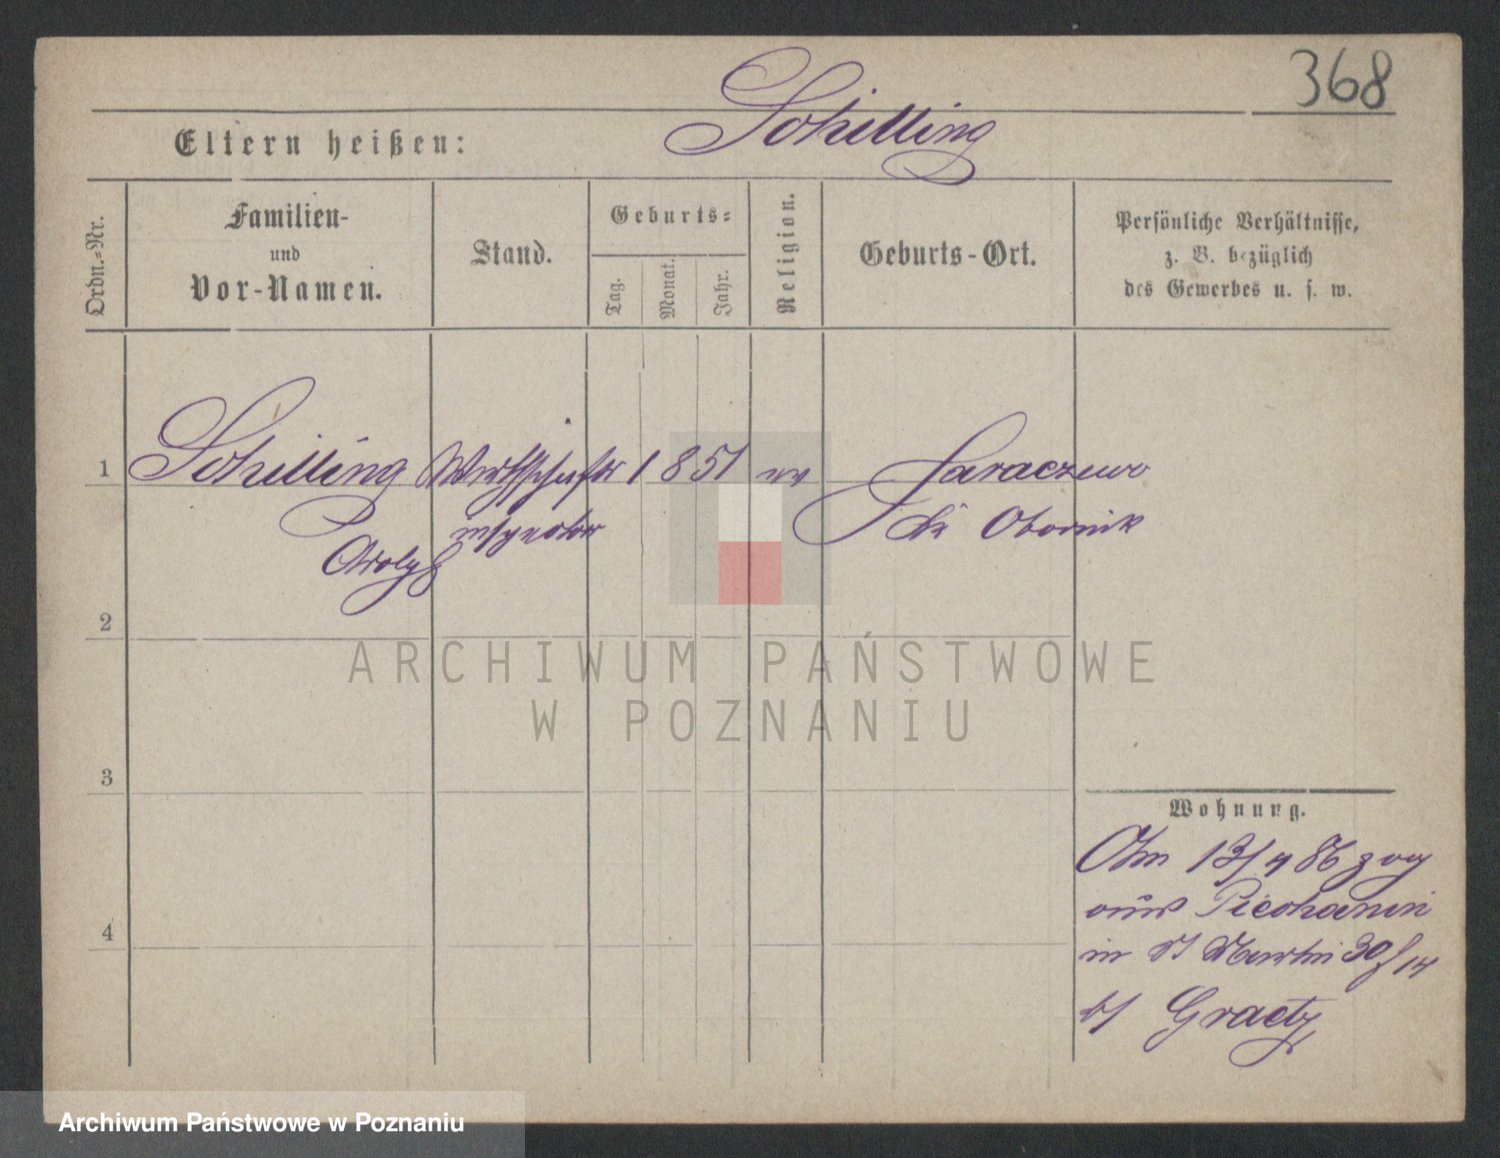 368
Schilling
Eltern heißen:
Ordn.-Nr.
Familien-
und
Vor-Namen.
Stand.
Geburts-
Tag.
Monat.
Jahr.
Religion.
Geburts-Ort.
Persönliche Verhältnisse,
z. B. bezüglich
des Gewerbes u. s. w.
1
Schilling Wirthschafts 1851 ev
inspector
Adolph
Kr Obornik
2
ARCHIWUM PAŃSTWOWE
W POZNANIU
3
Wohnung.
Am 13/4 86 zog
aus
in St Martin 30/14
b/ Graetz
4
Archiwum Państwowe w Poznaniu